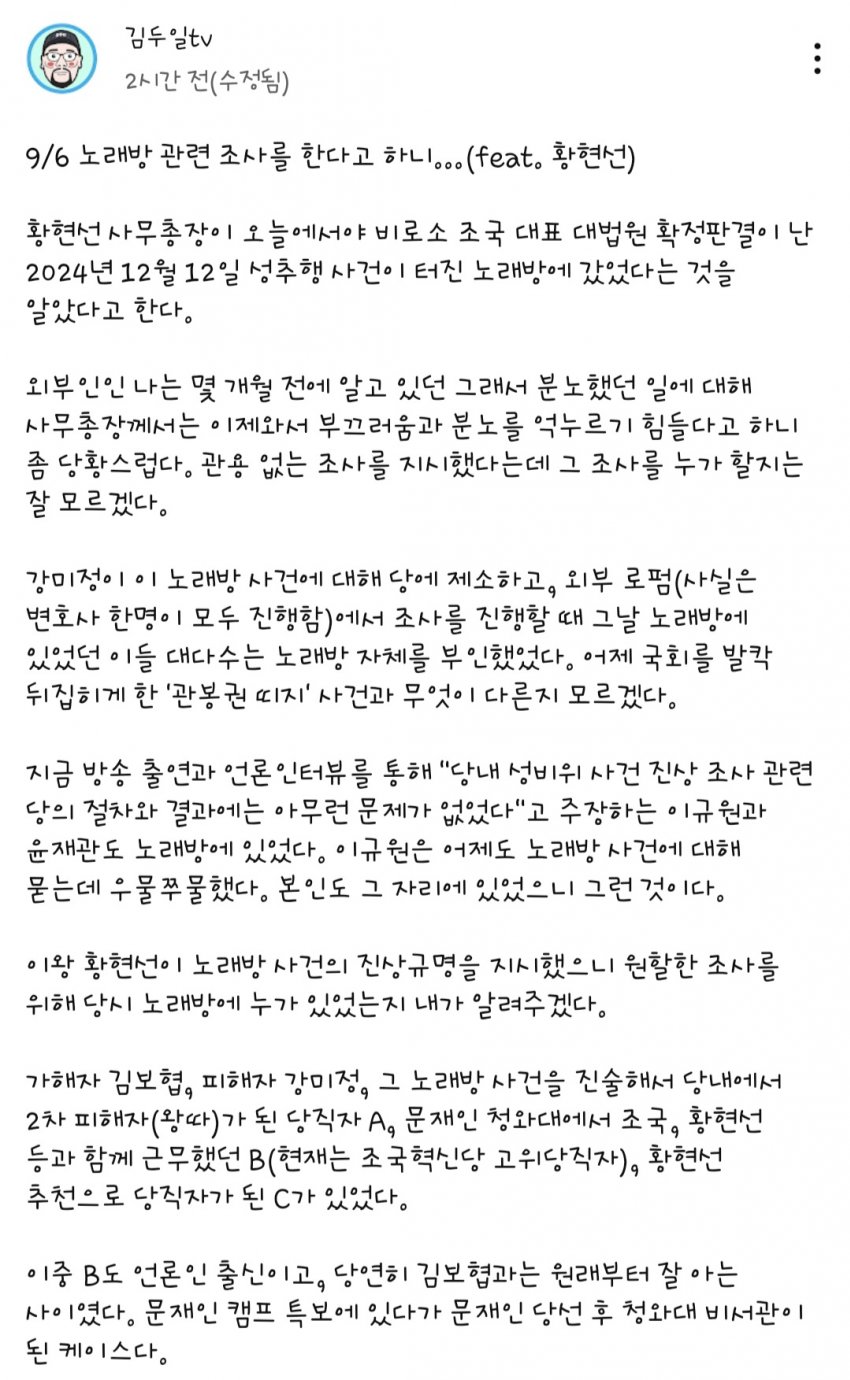 김두일tv
2시간 전(수정됨)
9/6 노래방 관련 조사를 한다고 하니...(feat. 황현선)
황현선 사무총장이 오늘에서야 비로소 조국 대표 대법원 확정판결이 난
2024년 12월 12일 성추행 사건이 터진 노래방에 갔었다는 것을
알았다고 한다.
외부인인 나는 몇 개월 전에 알고 있던 그래서 분노했던 일에 대해
사무총장께서는 이제와서 부끄러움과 분노를 억누르기 힘들다고 하니
좀 당황스럽다. 관용 없는 조사를 지시했다는데 그 조사를 누가 할지는
잘 모르겠다.
강미정이 이 노래방 사건에 대해 당에 제소하고, 외부 로펌(사실은
변호사 한명이 모두 진행함)에서 조사를 진행할 때 그날 노래방에
있었던 이들 대다수는 노래방 자체를 부인했었다. 어제 국회를 발칵
뒤집히게 한 '관봉권 띠지' 사건과 무엇이 다른지 모르겠다.
지금 방송 출연과 언론인터뷰를 통해 "당내 성비위 사건 진상 조사 관련
당의 절차와 결과에는 아무런 문제가 없었다"고 주장하는 이규원과
윤재관도 노래방에 있었다. 이규원은 어제도 노래방 사건에 대해
묻는데 우물쭈물했다. 본인도 그 자리에 있었으니 그런 것이다.
이왕 황현선이 노래방 사건의 진상규명을 지시했으니 원할한 조사를
위해 당시 노래방에 누가 있었는지 내가 알려주겠다.
가해자 김보협, 피해자 강미정, 그 노래방 사건을 진술해서 당내에서
2차 피해자(왕따)가 된 당직자 A, 문재인 청와대에서 조국, 황현선
등과 함께 근무했던 B(현재는 조국혁신당 고위당직자), 황현선
추천으로 당직자가 된 C가 있었다.
이중 B도 언론인 출신이고, 당연히 김보협과는 원래부터 잘 아는
사이였다. 문재인 캠프 특보에 있다가 문재인 당선 후 청와대 비서관이
된 케이스다.